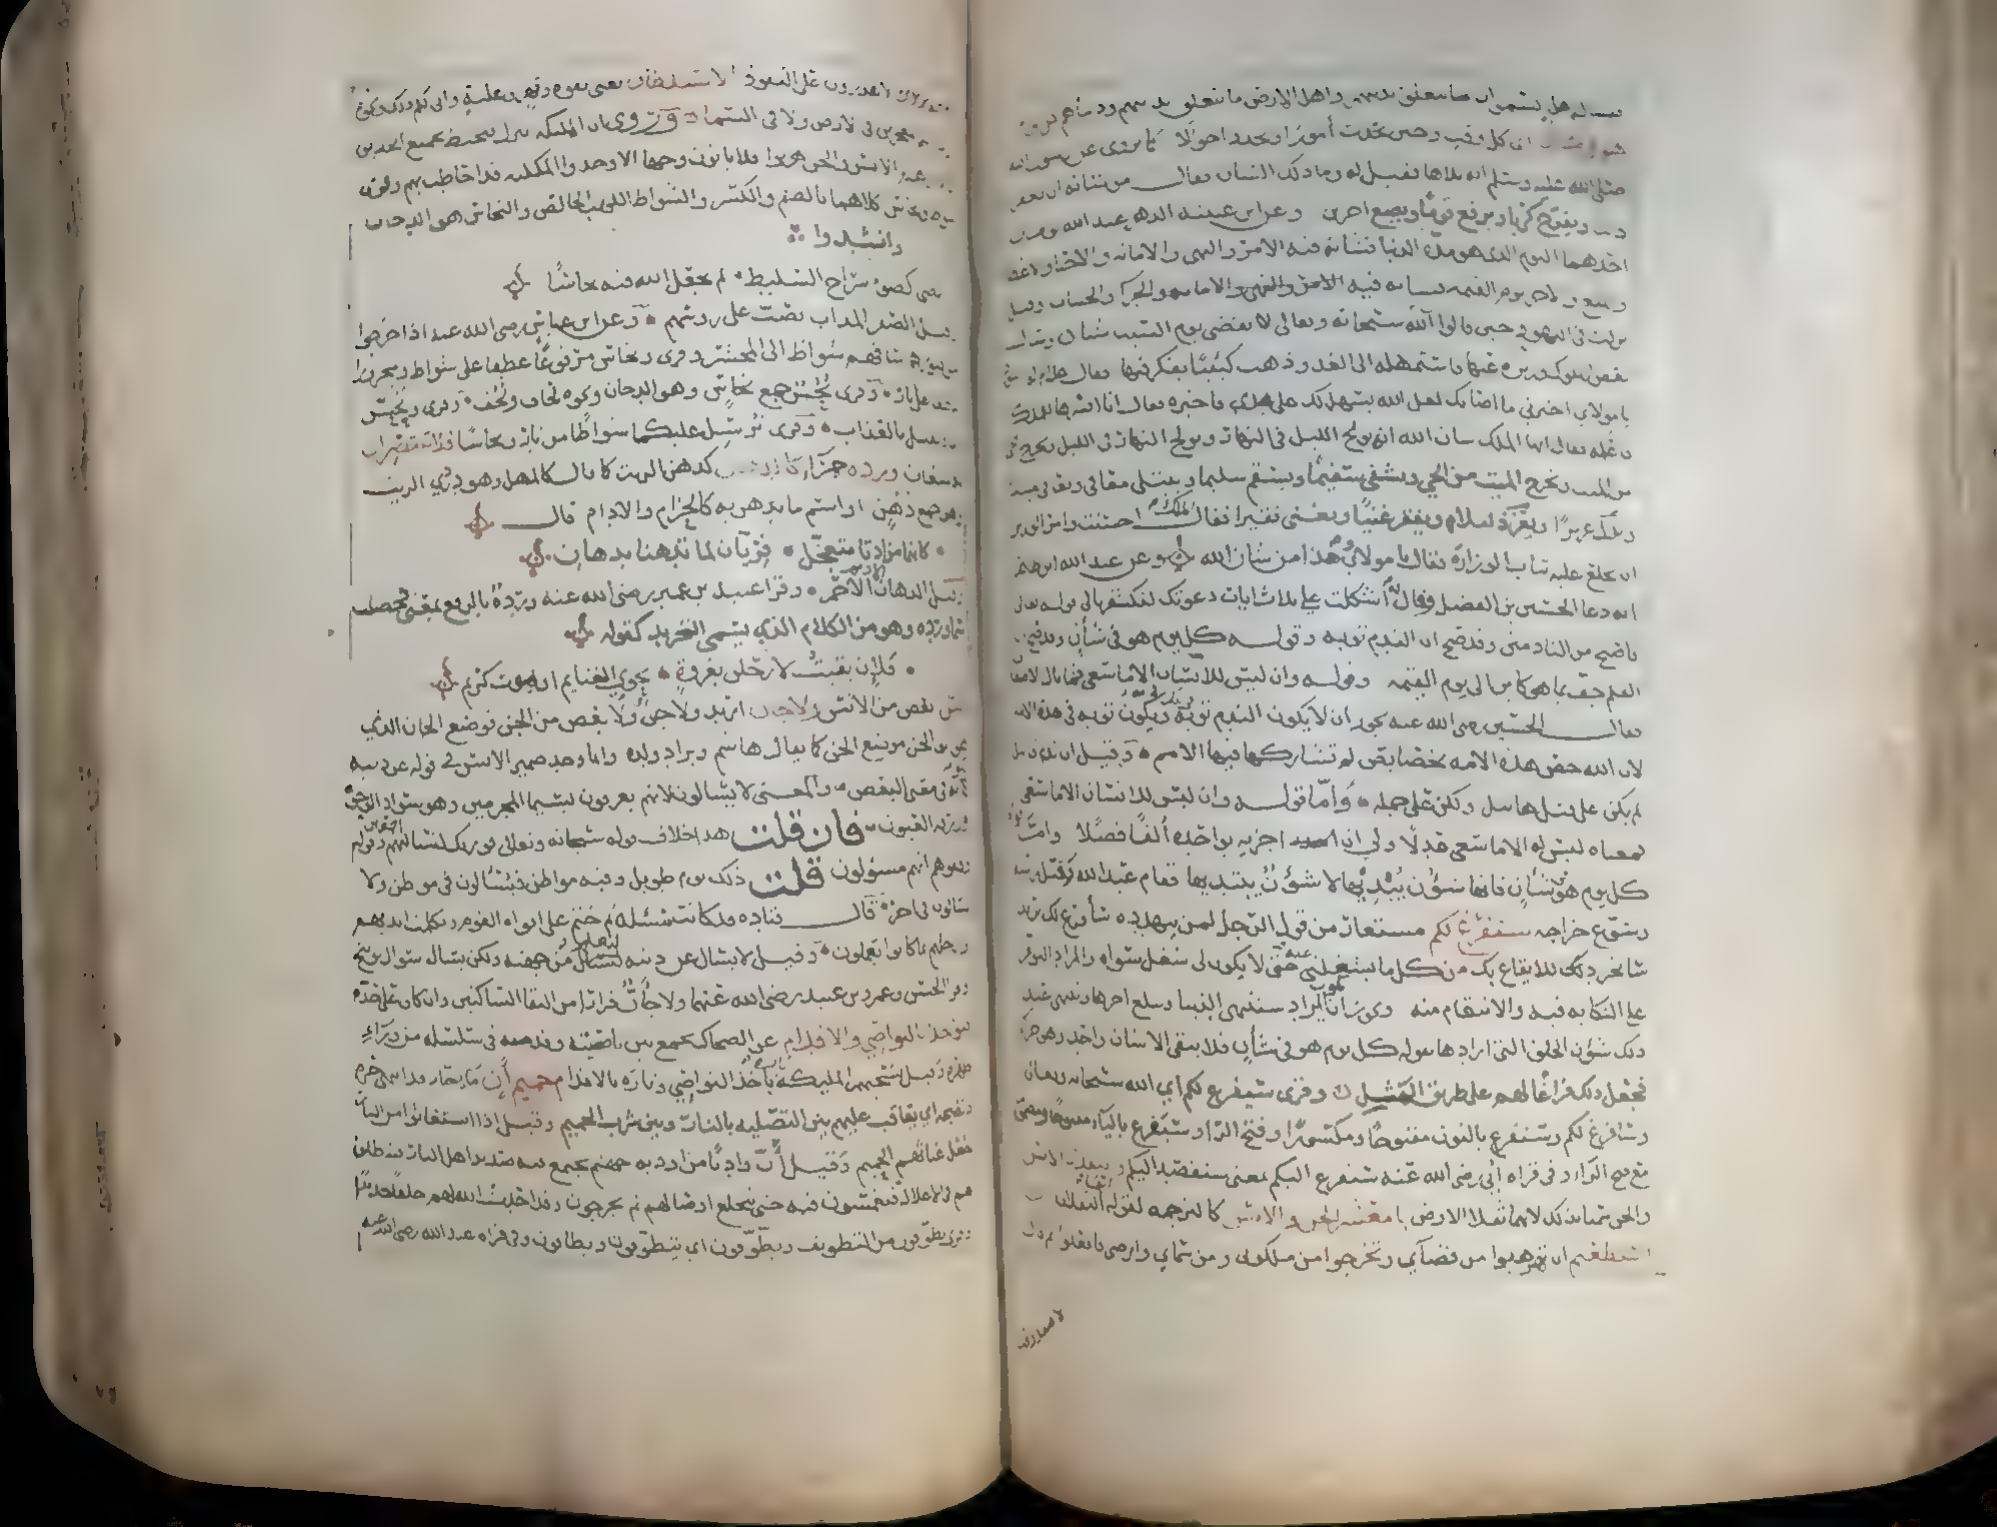 يسأله أهل السموات ما يتعلق بدينهم وأهل الأرض ما يتعلق بدينهم ودنياهم كل يوم
هو في شأن أي كل وقت وحين يحدث أمورا ويجدد أحوالا كما روي عن رسول الله
صلى الله عليه وسلم انه تلاها فقيل له وما ذلك الشان فقال من شانه ان يغفر
ذنبا ويفرج كربا ويرفع قوما ويضع اخرين وعن ابن عيينه الدهر عند الله يومان
احدهما اليوم الذي هو مدة الدنيا فشانه فيه الامر والنهي والاماته والاحيا والاعطا
والمنع والاخر يوم القيمه فشانه فيه الجزا والحساب وقيل
نزلت في اليهود حين قالوا ان الله سبحانه وتعالى لا يقضي يوم السبت شيا وسال
بعض الملوك وزيره عنها فاستمهله الى الغد وذهب كئيبا يفكر فيها فقال غلام له
يا مولاي اخبرني ما اصابك لعل الله يسهل لك على يدي فاخبره فقال انا افسرها للملك
فاعلمه فقال ايها الملك شان الله ان يولج الليل في النهار ويولج النهار في الليل ويخرج الحي
من الميت ويخرج الميت من الحي ويشفي سقيما ويسقم سليما ويبتلي معافى ويعافي مبتلى
ويذل عزيزا ويعز ذليلا ويفقر غنيا ويغني فقيرا فقال الملك احسنت وامر الوزير
ان يخلع عليه ثياب الوزارة فقال يا مولاي هذا من شان الله وعن عبد الله ابن طاهر
انه دعا الحسين بن الفضل وقال له أشكلت علي ثلاث ايات دعوتك لتكشفها لي قوله تعالى
فاصبح من النادمين وقد صح ان الندم توبه وقوله كل يوم هو في شأن وقد صح ان
القلم جف بما هو كائن الى يوم القيمه وقوله وان ليس للانسان الا ما سعى فما بال الاضعاف
فقال الحسين رضي الله عنه يجوز ان لا يكون الندم توبة في تلك الامة ويكون توبه في هذه الامة
لان الله خص هذه الامه بخصائص لم تشاركها فيها الامم وقيل ان ندم قابيل
لم يكن على قتل هابيل ولكن على حمله وأما قوله وان ليس للانسان الا ما سعى
فمعناه ليس له الا ما سعى عدلا ولي ان اجزيه بواحدة ألفا فضلا واما قوله
كل يوم هو في شأن فانها شؤن يبديها لا شؤن يبتديها فقام عبد الله وقبل راسه
وسوغ خراجه سنفرغ لكم مستعار من قول الرجل لمن يهدده سأفرغ لك يريد
سأتجرد للايقاع بك من كل ما يشغلني عنه حتى لا يكون لي شغل سواه والمراد التوفر
على النكاية فيه والانتقام منه ويجوز ان يراد ستنتهي الدنيا وتبلغ اخرها وتنتهي عند
ذلك شؤن الخلق التي ارادها بقوله كل يوم هو في شأن فلا يبقى الا شان واحد وهو جزاؤكم
فجعل ذلك فراغا لهم على طريق المثل وقرى سيفرغ لكم اي الله سبحانه وتعالى
وسأفرغ لكم وسنفرغ بالنون مفتوحا ومكسورا وفتح الرا وسيفرغ بالياء مفتوحا ومضموما
مع فتح الراء وفي قراه أبي رضي الله عنه سنفرغ اليكم بمعنى سنقصد اليكم والثقلان الانس
والجن سميا بذلك لانهما ثقلا الارض يا معشر الجن والانس كالترجمه لقوله أيه الثقلان
ان استطعتم ان تهربوا من قضائي وتخرجوا من ملكوتي ومن سمائي وارضي فافعلوا ثم قال
لا تقدرون
لا تقدرون على النفوذ الا بسلطان يعني بقوة وقهر وغلبة وانى لكم ذلك ونحوه
وما انتم بمعجزين في الارض ولا في السماء وروي ان الملئكه تنزل فتحيط بجميع الخلائق
فاذا راهم الانس والجن هربوا فلا ياتون وجها الا وجدوا الملئكه
شواظ ونحاس كلاهما بالضم والكسر والشواظ اللهب الخالص والنحاس الدخان
وانشدوا
تضي كضوء سراج السليط لم يجعل الله فيه نحاسا
وقيل الصفر المذاب يصب على رؤسهم وعن ابن عباس رضي الله عنه اذا خرجوا
من قبورهم ساقهم شواظ الى المحشر وقرى ونحاس مرفوعا عطفا على شواظ ومجرورا
عطفا على نار وقرى نحس جمع نحاس وهو الدخان ونحوه لحاف ولحف وقرى ونحس
اي نقتل بالعذاب وقرى نرسل عليكما شواظا من نار ونحاسا فلا تنتصران
وردة حمراء كالدهان كدهن الزيت كما قال كالمهل وهو دردي الزيت
وهو جمع دهن او اسم ما يدهن به كالحزام والادام قال
كانهما مزادتا متعجل فريان لما تدهنا بدهان
وقيل الدهان الاديم الاحمر وقرا عبيد بن عمير رضي الله عنه وردة بالرفع بمعنى فحصلت
سماء وردة وهو من الكلام الذي يسمى التجريد كقوله
فلإن بقيت لارحلن بغزوة تحوي الغنايم او يموت كريم
انس بعض من الانس ولا جان اريد ولا جن اي ولا بعض من الجن فوضع الجان الذي
هو ابو الجن موضع الجن كما يقال هاشم ويراد ولده وانما وحد ضمير الانس في قوله عن ذنبه
لكونه في معنى البعض والمعنى لا يسالون لانهم يعرفون بسيما المجرمين وهو سواد الوجوه
وزرقة العيون فان قلت هذا خلاف قوله سبحانه وتعالى فوربك لنسالنهم اجمعين وقوله
وقفوهم انهم مسؤلون قلت ذلك يوم طويل وفيه مواطن فيسألون في موطن ولا
يسالون في اخر قال قتاده قد كانت مسئله ثم ختم على افواه القوم وتكلمت ايديهم
وارجلهم بما كانوا يعملون وقيل لا يسال عن ذنبه ليعلم من جهته ولكن يسال سؤال توبيخ
وقرا الحسن وعمرو بن عبيد رضي الله عنهما ولا جأن فرارا من التقا الساكنين وان كان على حده
فيؤخذ بالنواصي والاقدام عن الضحاك يجمع بين ناصيته وقدمه في سلسله من وراء
ظهره وقيل تسحبهم الملئكة تارة تأخذ بالنواصي وتارة بالاقدام حميم آن ماء حار قد انتهى حره
ونضجه اي يعاقب عليهم بين التصليه بالنار وبين شرب الحميم وقيل اذا استغاثوا من النار
جعل غياثهم الحميم وقيل أن واديا من اودية جهنم يجتمع فيه صديد اهل النار فينطلق
بهم في الاغلال فيغمسون فيه حتى تخلع اوصالهم ثم يخرجون وقد احدث الله لهم خلقا جديدا
وقرى يطوفون من التطويف ويطوفون اي يتطوفون ويطافون وفي قراه عبد الله رضي الله عنه